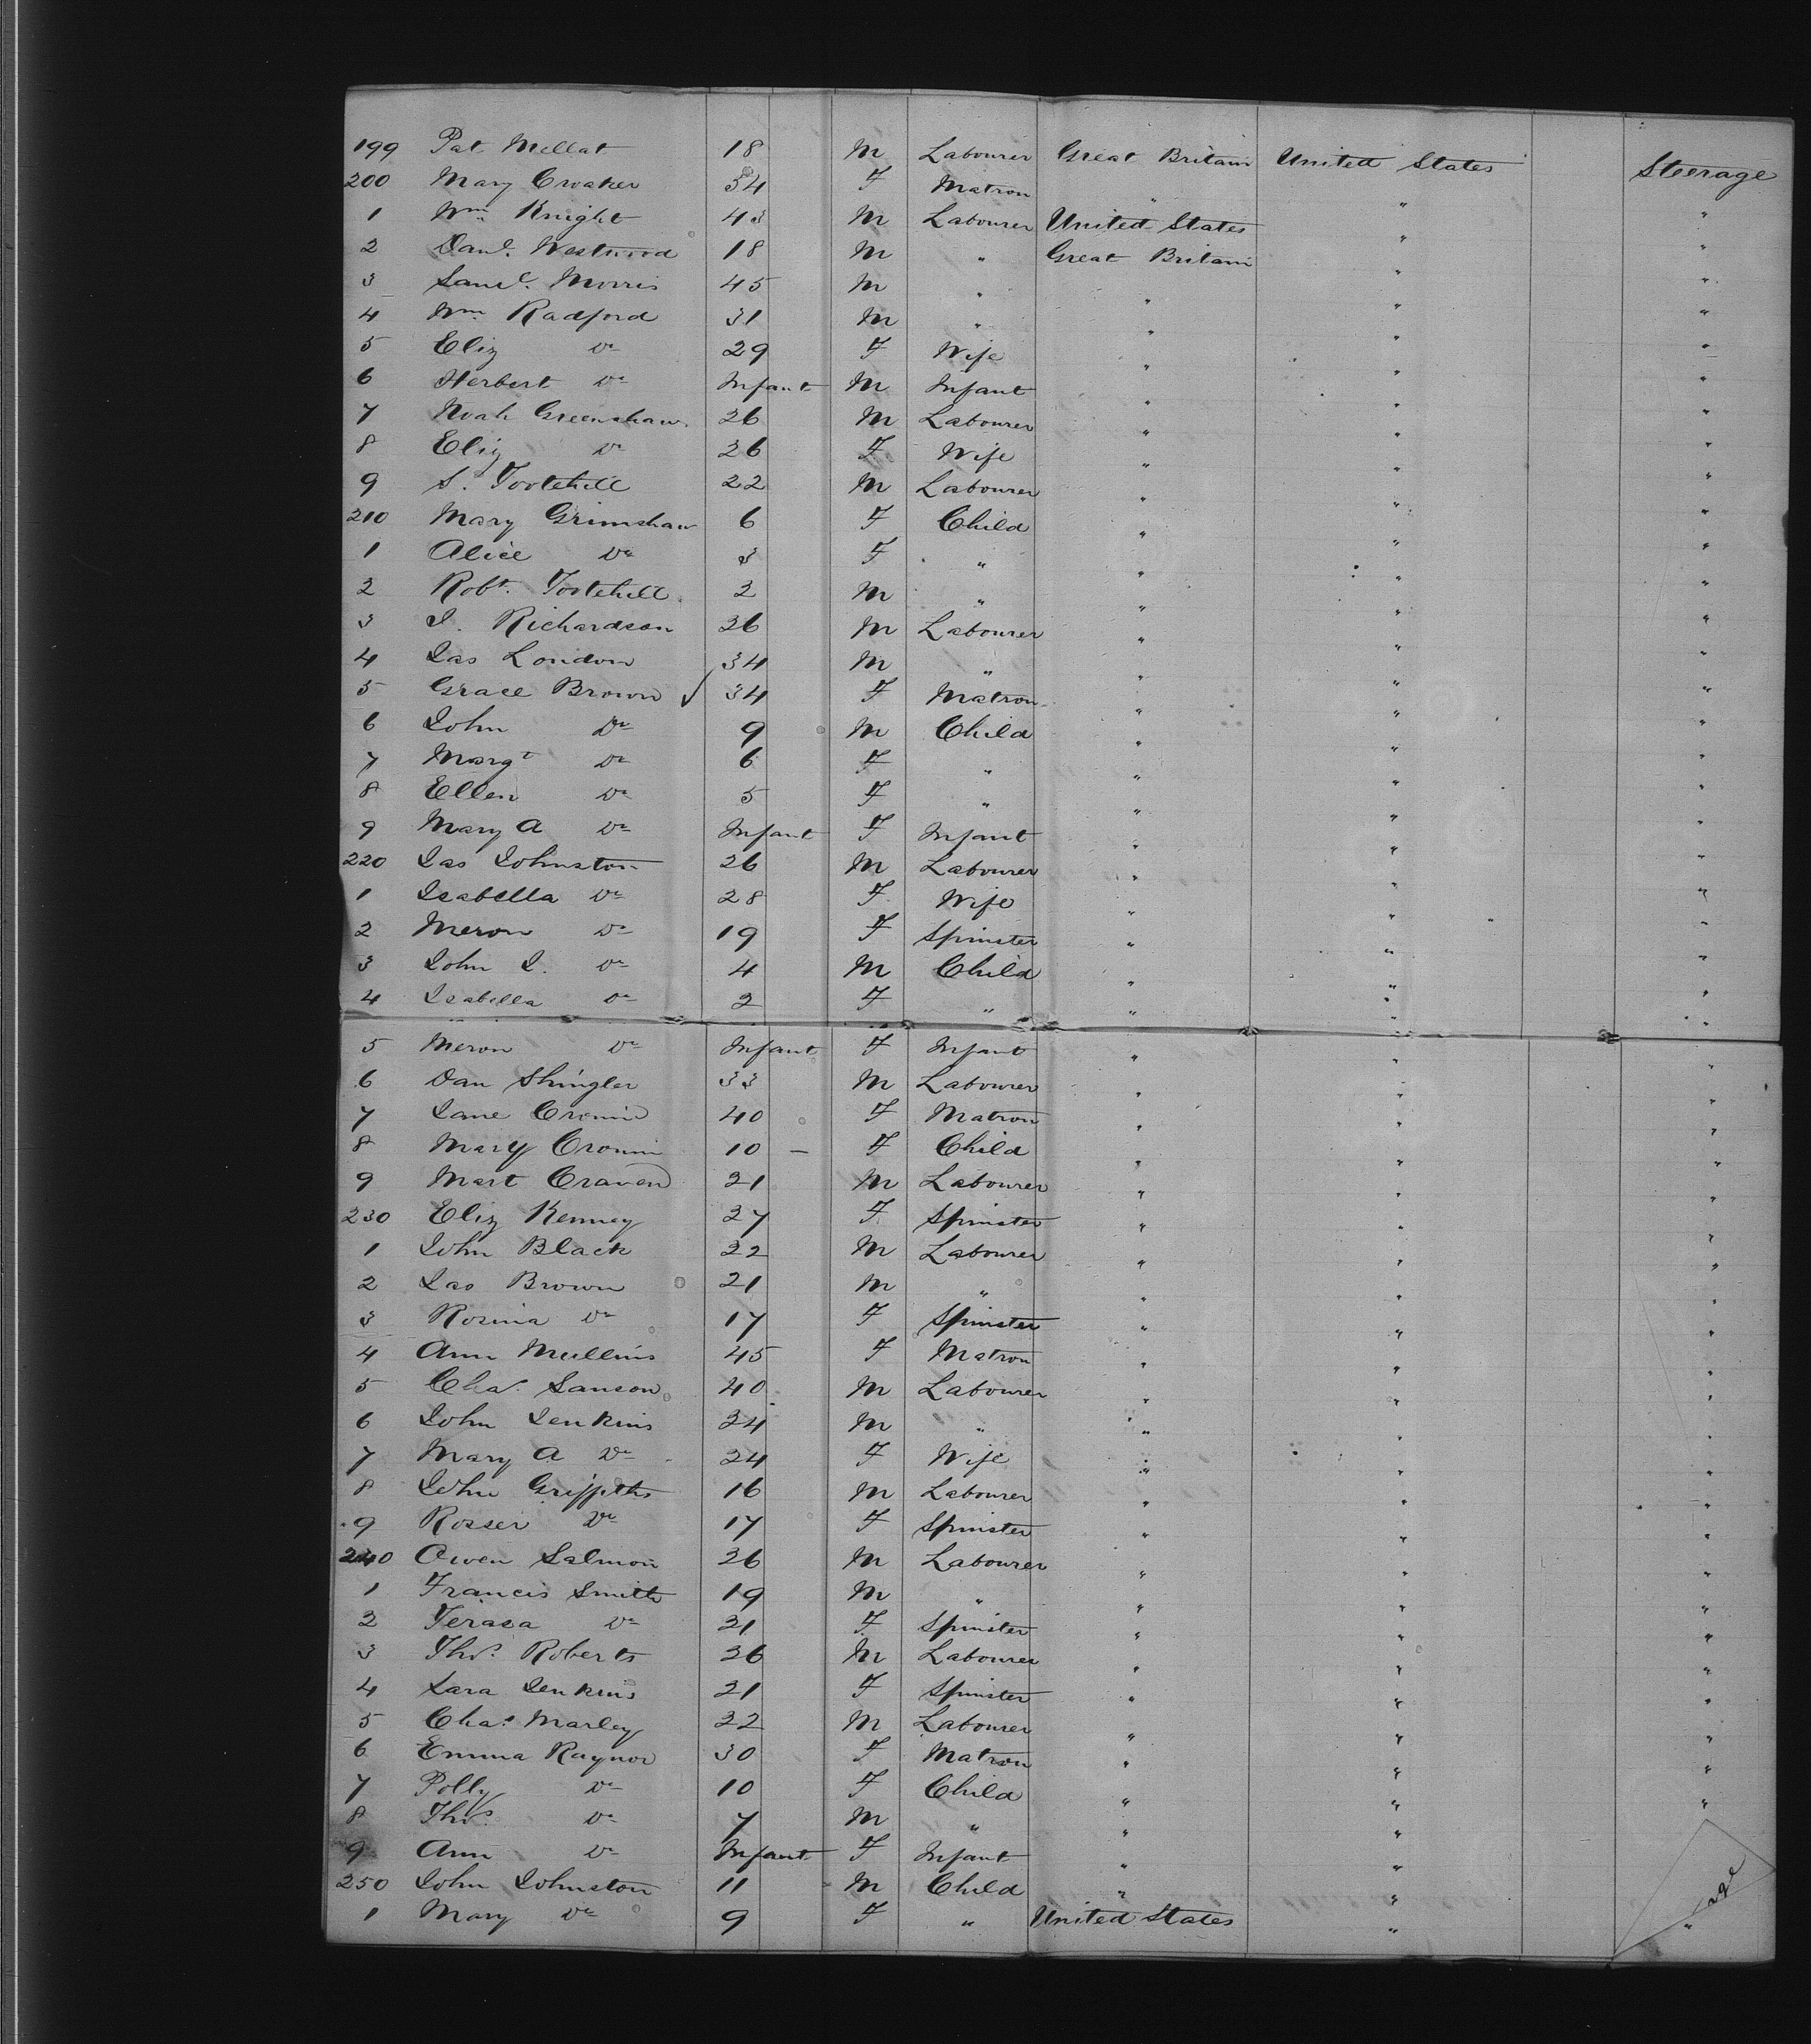 199 Pat Mellat 18 M Labourer Great Britain United States Steerage
200 Mary Croaker 34 F Matron " " "
1 Wm Knight 43 M Labourer United States " "
2 Danl. Westwood 18 M " Great Britain " "
3 Saml. Morris 45 M " " " "
4 Wm Radford 31 M " " " "
5 Eliz Do 29 F Wife " " "
6 Herbert Do Infant M Infant " " "
7 Noah Greenshaw 26 M Labourer " " "
8 Eliz Do 26 F Wife " " "
9 S. Tootehill 22 M Labourer " " "
210 Mary Grimshaw 6 F Child " " "
1 Alice Do 3 F " " " "
2 Robt. Tootehill 2 M " " " "
3 J. Richardson 26 M Labourer " " "
4 Jas London 34 M " " " "
5 Grace Brown ✓ 34 F Matron " " "
6 John Do 9 M Child " " "
7 Margt Do 6 F " " " "
8 Ellen Do 5 F " " " "
9 Mary A Do Infant F Infant " " "
220 Jas Johnston 26 M Labourer " " "
1 Isabella Do 28 F Wife " " "
2 Meron Do 19 F Spinster " " "
3 John J. Do 4 M Child " " "
4 Isabella Do 2 F " " " "
5 Meron Do Infant F Infant " " "
6 Dan Shingler 33 M Labourer " " "
7 Jane Cronin 40 F Matron " " "
8 Mary Cronin 10 – F Child " " "
9 Mart Craven 21 M Labourer " " "
230 Eliz Kenney 27 F Spinster " " "
1 John Black 22 M Labourer " " "
2 Jas Brown 21 M " " " "
3 Rosina Do 17 F Spinster " " "
4 Ann Mullins 45 F Matron " " "
5 Chas. Sanson 40 M Labourer " " "
6 John Jenkins 24 M " " " "
7 Mary A Do 24 F Wife " " "
8 John Griffiths 16 M Labourer " " "
9 Rosser Do 17 F Spinster " " "
240 Owen Salmon 26 M Labourer " " "
1 Francis Smith 19 M " " " "
2 Terasa Do 21 F Spinster " " "
3 Thos. Roberts 26 M Labourer " " "
4 Sara Jenkins 21 F Spinster " " "
5 Chas. Marley 22 M Labourer " " "
6 Emma Raynor 30 F Matron " " "
7 Polly Do 10 F Child " " "
8 Thos. Do 7 M " " "
9 Ann Do Infant F Infant " "
250 John Johnston 11 M Child " "
1 Mary Do 9 F " United States " "